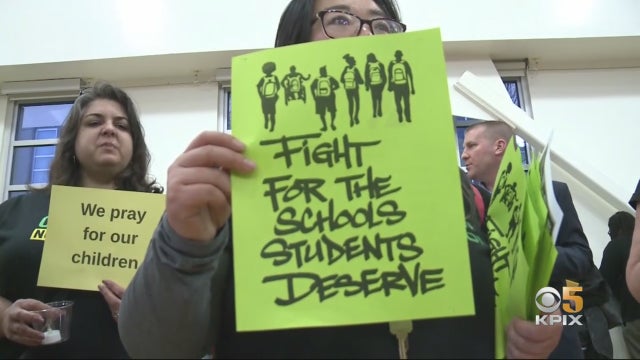 FIGHT
FOR THE
SCHOOLS
STUDENTS
DESERVE
We pray
for our
children
5
KPIX